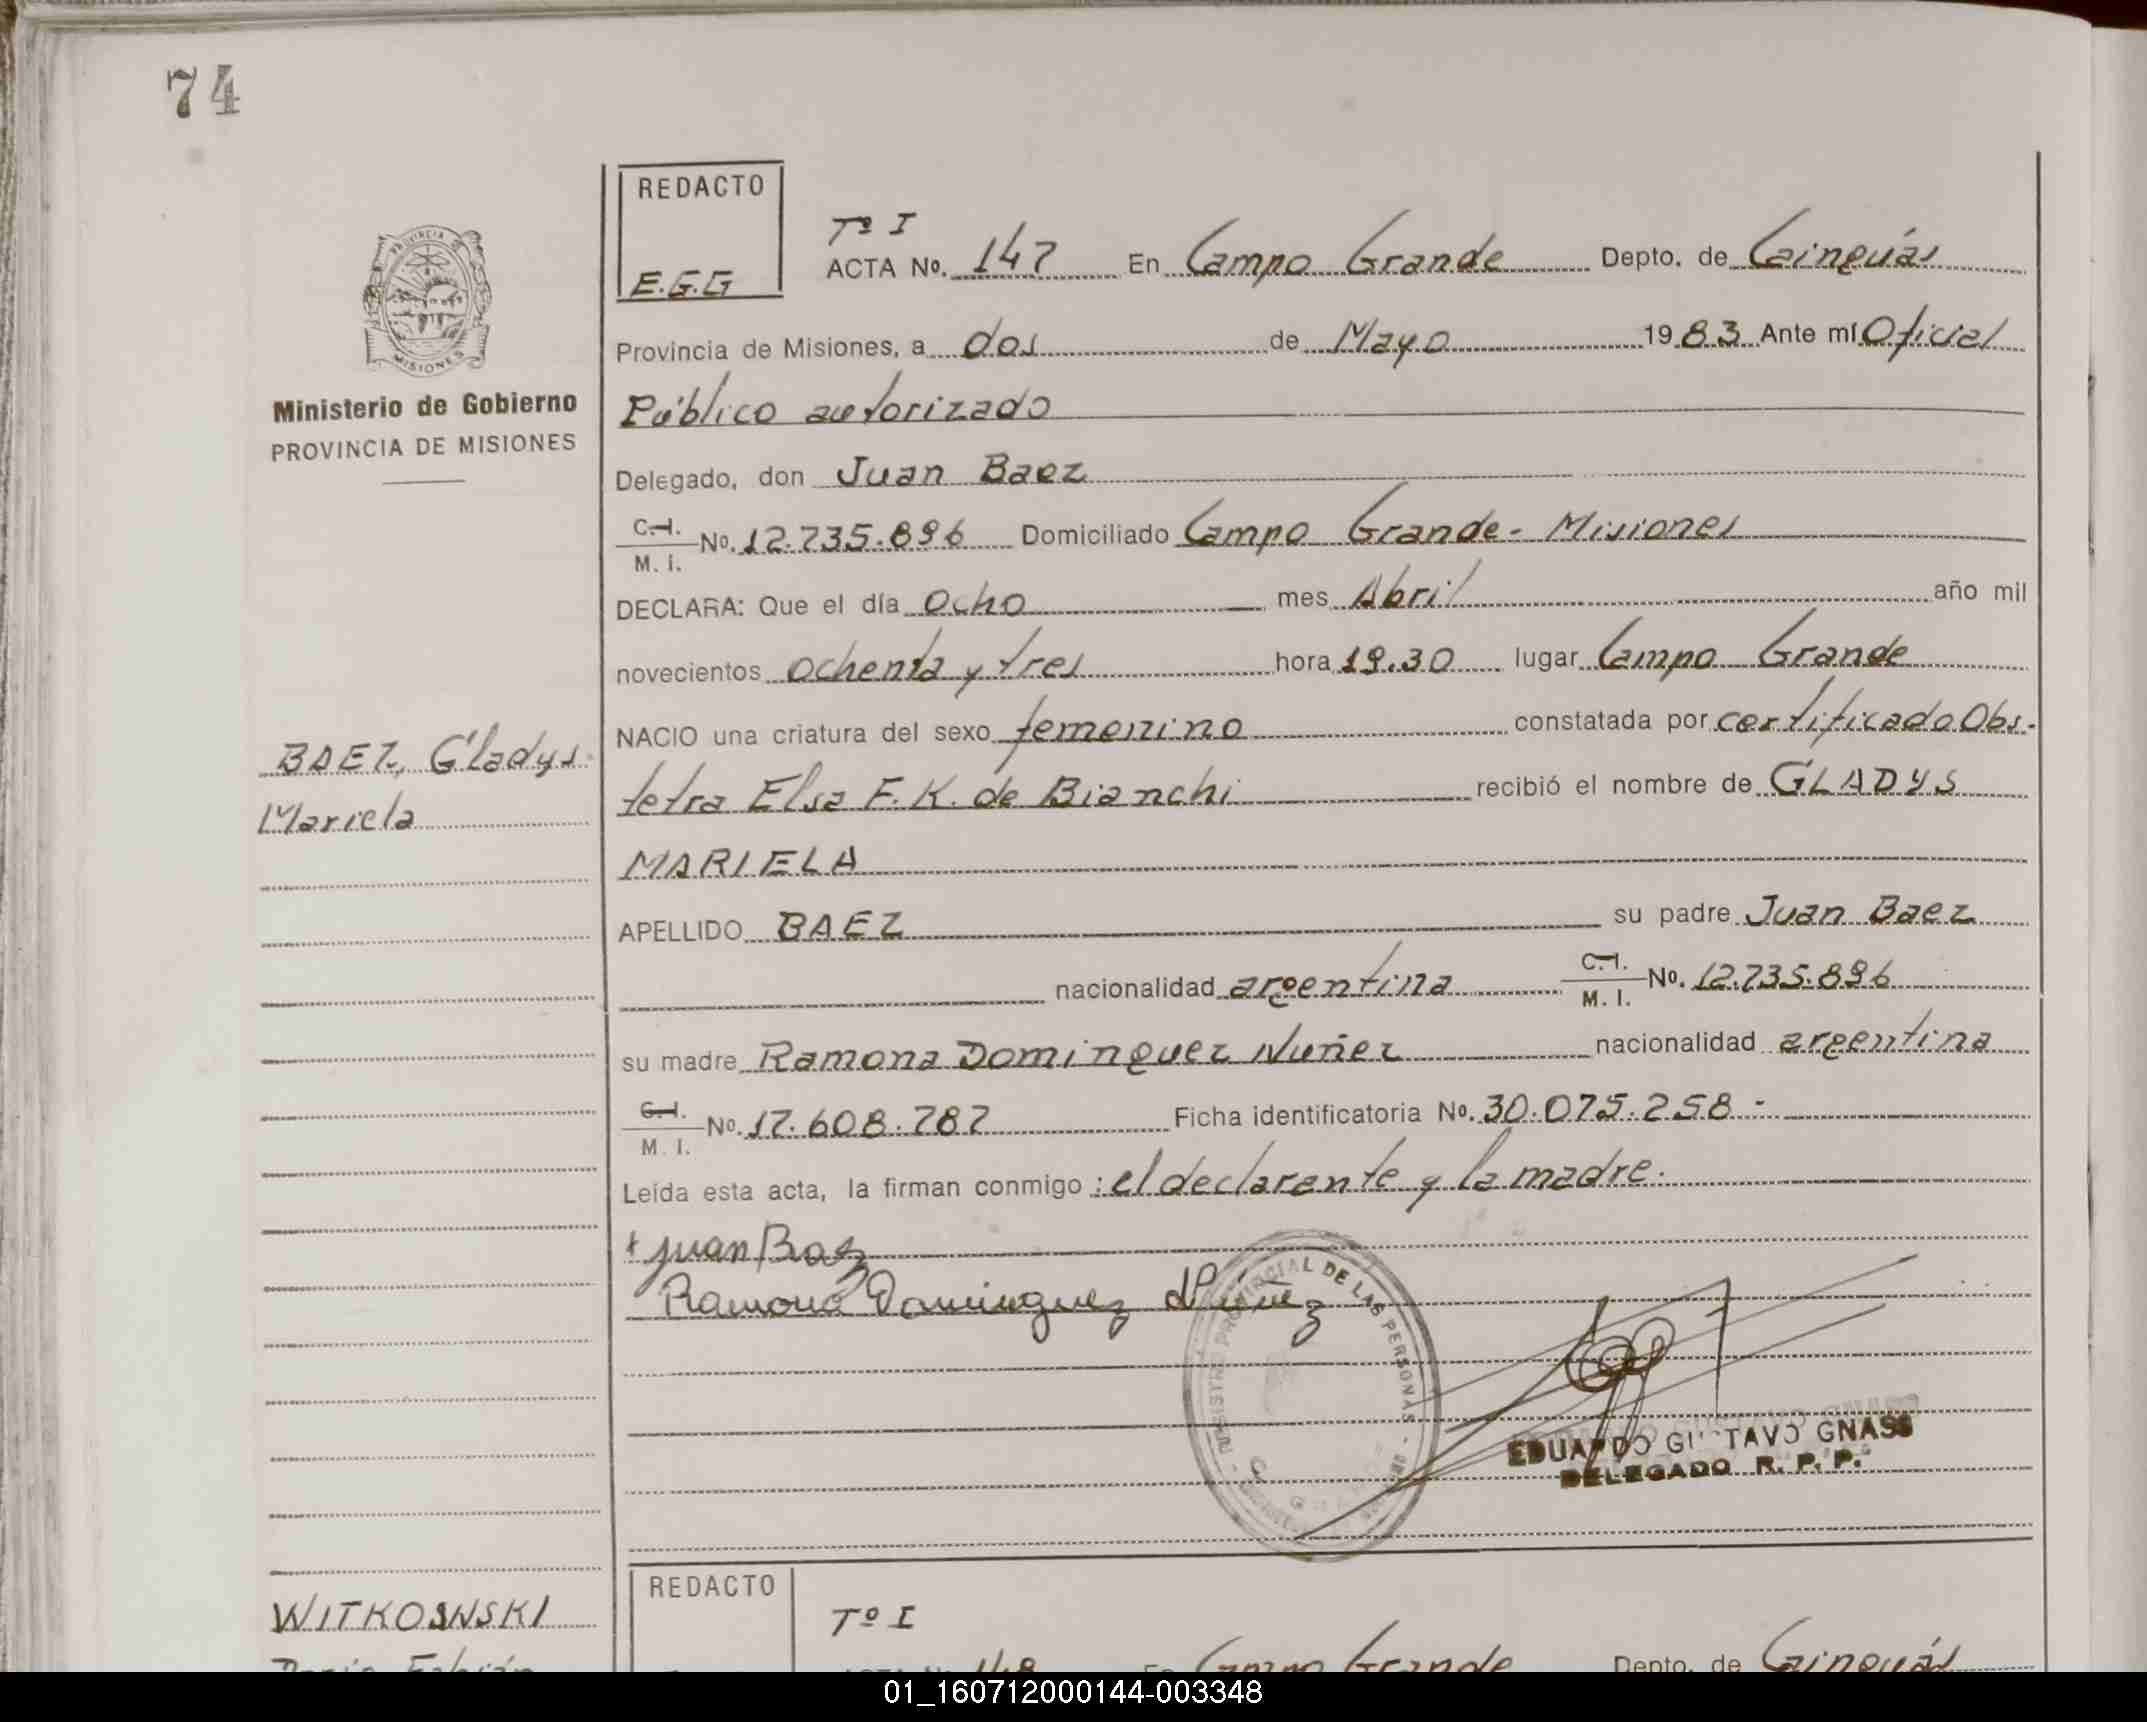 74
REDACTO
E.G.G
Tº I
ACTA No. 147 En Campo Grande Depto. de Cainguás
Provincia de Misiones, a dos de Mayo 1983 Ante mí Oficial
Público autorizado
Delegado, don Juan Baez
C.I. M. I. No. 12.735.896 Domiciliado Campo Grande - Misiones
DECLARA: Que el día ocho mes Abril año mil
novecientos ochenta y tres hora 19.30 lugar Campo Grande
NACIO una criatura del sexo femenino constatada por certificado Obs-
tetra Elsa F. K. de Bianchi recibió el nombre de GLADYS
MARIELA
APELLIDO BAEZ su padre Juan Baez
nacionalidad argentina C.I. M. I. No. 12.735.896
su madre Ramona Dominguez Nuñez nacionalidad argentina
C.I. M. I. No. 17.608.787 Ficha identificatoria No. 30.075.258 -
Leída esta acta, la firman conmigo : el declarante y la madre.
Juan Baez
Ramona Dominguez Núñez
PROVINCIAL DE LAS PERSONAS
EDUARDO GUSTAVO GNASS
DELEGADO R. P. P.
PROVINCIA DE
MISIONES
Ministerio de Gobierno
PROVINCIA DE MISIONES
BAEZ, Gladys
Mariela
WITKOSWSKI
REDACTO
Tº I
En Campo Grande Depto. de Cainguás
01_160712000144-003348